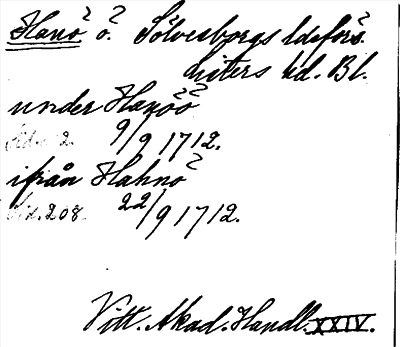 Hanö ö. Sölvesborgs ldsförs.
hd. Bl.
under Hanöö
Sid. 2. 9/9 1712.
ifrån Hahnö
Sid. 208. 22/9 1712.
Vitt. Akad. Handl. XXIV.